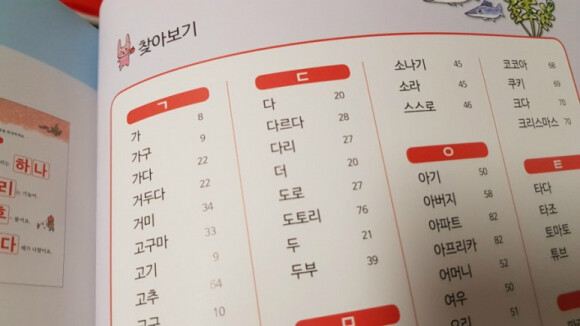 찾아보기
ㄱ
가 8
가구 9
가다 22
거두다 22
거미 34
고구마 33
고기 9
고추 64
ㄷ
다 20
다르다 28
다리 27
더 20
도로 27
도토리 76
두 21
두부 39
ㅁ
소나기 45
소라 45
스스로 46
ㅇ
아기 50
아버지 58
아파트 82
아프리카 82
어머니 52
여우 50
코코아 68
쿠키 69
크다 70
크리스마스 70
ㅌ
타다
타조
토마토
튜브
하나
리
다